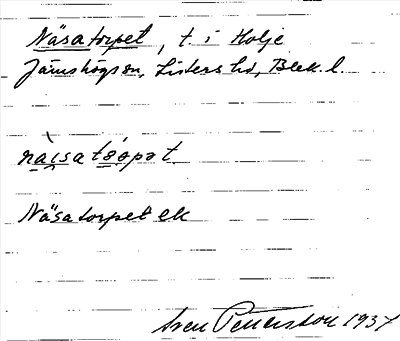 Näsatorpet, t. i Holje
Jämshögs sn, Listers hd, Blek. l.
nàisatòopət
Näsatorpet ek
Sven Pettersson 1937